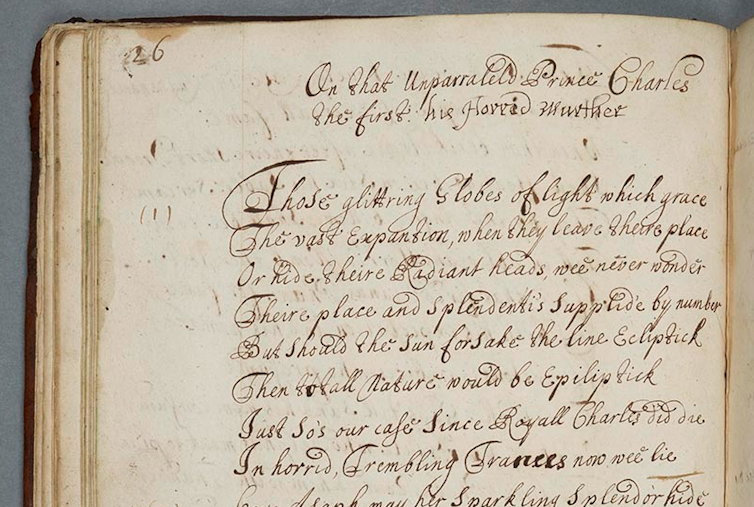 26
On that Unparraleld Prince Charles
the first: his Horrid Murther
(1)
Those glittring Globes of light which grace
The vast Expantion, when they leave theire place
Or hide theire Radiant heads, wee never wonder
Theire place and splendentis supplide by number
But should the sun forsake the line Ecliptick
Then totall Nature would be Epiliptick
Just so's our case since Royall Charles did die
In horrid, Trembling Trances now wee lie
may her Sparkling Splendor hide